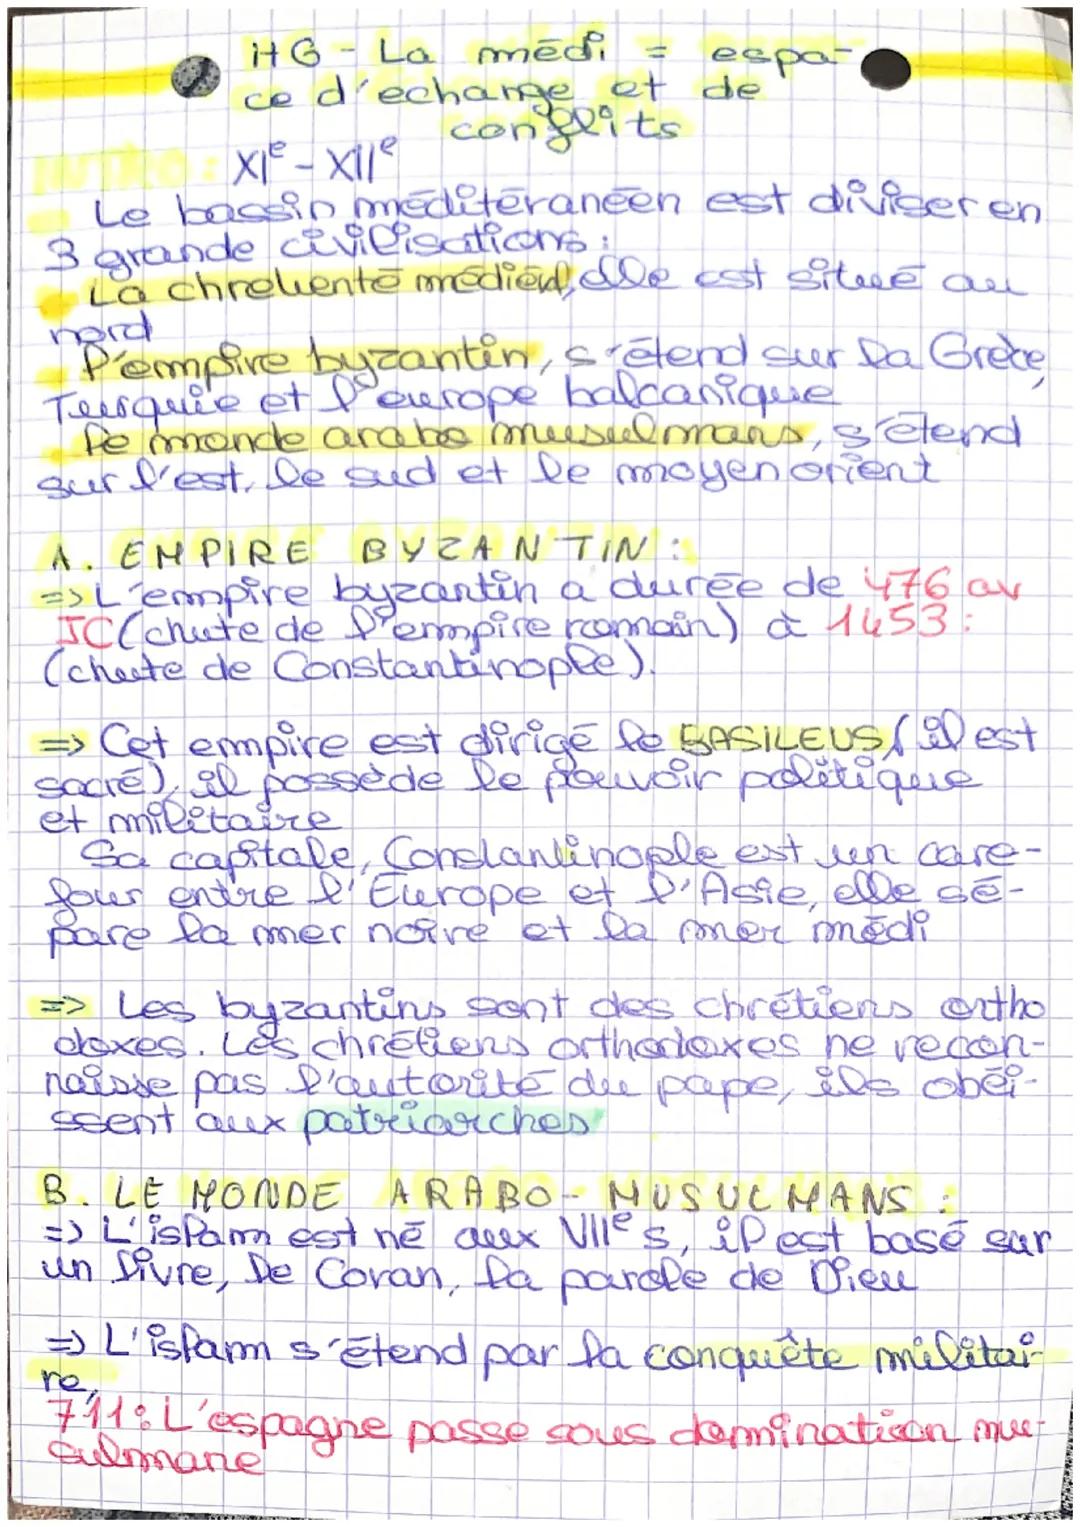 HG - La médi = espa-
ce d'échange et de
conflits
Intro : XIe - XIIe
Le bassin méditéranéen est diviser en
3 grande civilisations :
La chretienté médiéval, elle est situé au
nord
l'empire byzantin, s'étend sur la Grèce,
Turquie et l'europe balcanique
le monde arabo musulmans, s'étend
sur l'est, le sud et le moyen orient
A. EMPIRE BYZANTIN :
=> L'empire byzantin a durée de 476 av
JC (chute de l'empire romain) à 1453 :
(chute de Constantinople).
=> Cet empire est dirigé le BASILEUS (il est
sacré), il possède le pouvoir politique
et militaire
Sa capitale, Constantinople est un care-
four entre l'Europe et l'Asie, elle sé-
pare la mer noire et la mer médi
=> Les byzantins sont des chrétiens ortho
doxes. Les chrétiens orthodoxes ne recon-
naisse pas l'autorité du pape, ils obéi-
ssent aux patriarches
B. LE MONDE ARABO-MUSULMANS :
=> L'islam est né aux VIIe s, il est basé sur
un livre, le Coran, la parole de Dieu
=> L'islam s'étend par la conquête militai-
re,
711 : L'espagne passe sous domination mu-
sulmane